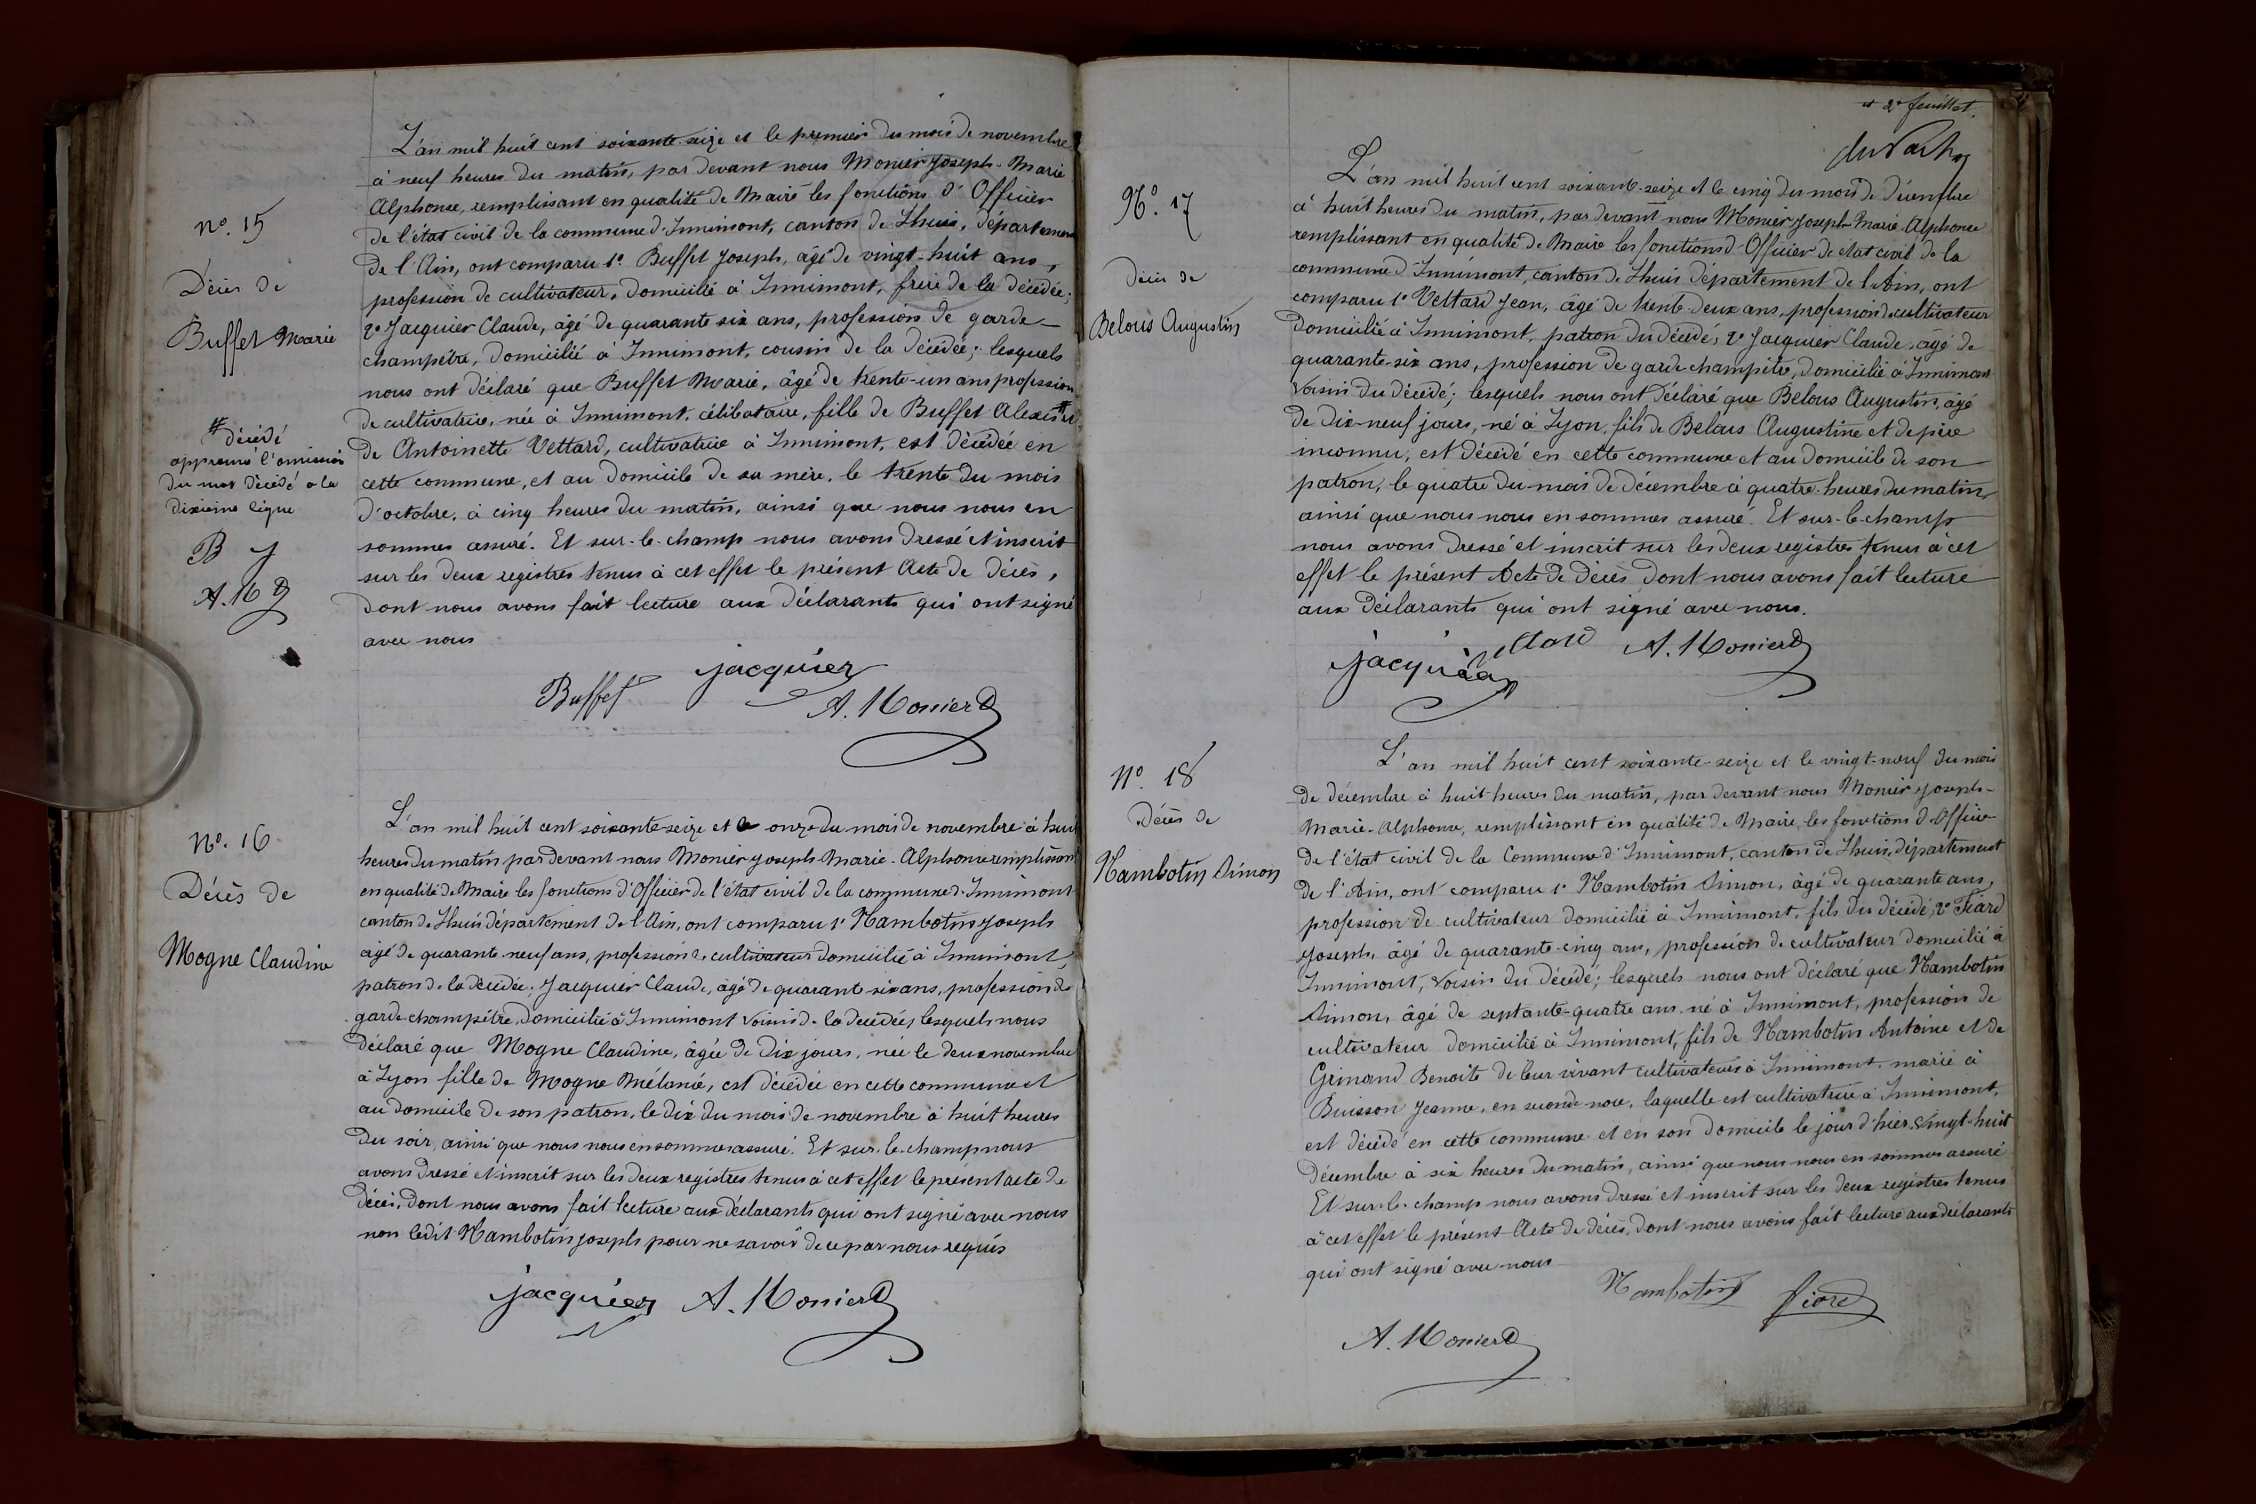 nº. 15
Décès de
Buffet Marie
# décédé
approuvé l'omission
du mot décédé a la
dixième ligne
B J
A. M
L'an mil huit cent soixante-seize et le premier du mois de novembre
à neuf heures du matin, par devant nous Monier Joseph-Marie
Alphonse, remplissant en qualité de Maire les fonctions d'Officier
de l'état civil de la commune d'Innimont, canton de Lhuis, département
de l'Ain, ont comparu 1º Buffet Joseph, âgé de vingt-huit ans,
profession de cultivateur, domicilié à Innimont, frère de la décédée;
2º Jacquier Claude, âgé de quarante six ans, profession de garde-
champêtre, domicilié à Innimont, cousin de la décédée; lesquels
nous ont déclaré que Buffet Marie, âgé de trente-un ans profession
de cultivatrice, née à Innimont, célibataire, fille de Buffet Alexis # et
de Antoinette Vettard, cultivatrice à Innimont, est décédée en
cette commune, et au domicile de sa mère, le trente du mois
d'octobre, à cinq heures du matin, ainsi que nous nous en
sommes assuré. Et sur-le-champ nous avons dressé et inscrit
sur les deux registres tenus à cet effet le présent Acte de décès,
dont nous avons fait lecture aux déclarants qui ont signé
avec nous
jacquier
Buffet
A. Monier
Nº. 16
Décès de
Mogne Claudine
L'an mil huit cent soixante-seize et le onze du mois de novembre à huit
heures du matin par devant nous Monier Joseph-Marie-Alphonse remplissant
en qualité de Maire les fonctions d'Officier de l'état civil de la commune d'Innimont
canton de Lhuis département de l'Ain, ont comparu 1º Nambotin Joseph
âgé de quarante neuf ans, profession de cultivateur domicilié à Innimont,
patron de la décédée; Jacquier Claude, âgé de quarante six ans, profession de
garde champêtre, domicilié à Innimont voisin de la décédée, lesquels nous
déclaré que Mogne Claudine, âgée de dix jours, née le deux novembre
à Lyon fille de Mogne Mélanie, est décédée en cette commune et
au domicile de son patron, le dix du mois de novembre à huit heures
du soir, ainsi que nous nous en sommes assuré. Et sur-le-champ nous
avons dressé et inscrit sur les deux registres tenus à cet effet le présent acte de
décès, dont nous avons fait lecture aux déclarants qui ont signé avec nous
non ledit Nambotin joseph pour ne savoir de ce par nous requis
jacquier A. Monier
et 2e feuillet.
Nº. 17
Décès de
Belous Augustin
L'an mil huit cent soixante-seize et le cinq du mois de décembre
à huit heures du matin, par devant nous Monier Joseph-Marie-Alphonse
remplissant en qualité de Maire les fonctions d'Officier de etat civil de la
commune d'Innimont, canton de Lhuis département de l'Ain, ont
comparu 1º Vettard Jean, âgé de trente deux ans, profession de cultivateur
domicilié à Innimont, patron du décédé, 2º Jacquier Claude, âgé de
quarante-six ans, profession de garde champêtre, domicilié à Innimont
voisin du décédé; lesquels nous ont déclaré que Belous Augustin, âgé
de dix-neuf jours, né à Lyon, fils de Belous Augustine et de père
inconnu, est décédé en cette commune et au domicile de son
patron, le quatre du mois de décembre à quatre heures du matin,
ainsi que nous nous en sommes assuré. Et sur-le-champ
nous avons dressé et inscrit sur les deux registres tenus à cet
effet le présent Acte de décès dont nous avons fait lecture
aux déclarants qui ont signé avec nous.
jacquier A. Monier
Nº. 18
Décès de
Nambotin Simon
L'an mil huit cent soixante-seize et le vingt-neuf du mois
de décembre à huit heures du matin, par devant nous Monier Joseph-
Marie-Alphonse, remplissant en qualité de Maire, les fonctions d'Officier
de l'état civil de la Commune d'Innimont, canton de Lhuis, département
de l'Ain, ont comparu 1º Nambotin Simon, âgé de quarante ans,
profession de cultivateur domicilié à Innimont, fils du décédé, 2º Fiard
Joseph, âgé de quarante-cinq ans, profession de cultivateur domicilié à
Innimont, voisin du décédé; lesquels nous ont déclaré que Nambotin
Simon, âgé de septante-quatre ans, né à Innimont, profession de
cultivateur domicilié à Innimont, fils de Nambotin Antoine et de
Grinand Benoite de leur vivant cultivateurs à Innimont, marié à
Buisson Jeanne, en seconde noce, laquelle est cultivatrice à Innimont,
est décédé en cette commune et en son domicile le jour d'hier vingt-huit
décembre à six heures du matin, ainsi que nous nous en sommes assuré
Et sur-le-champ nous avons dressé et inscrit sur les deux registres tenus
à cet effet le présent Acte de décès, dont nous avons fait lecture aux déclarants
qui ont signé avec nous
Nambotin fiard
A. Monier